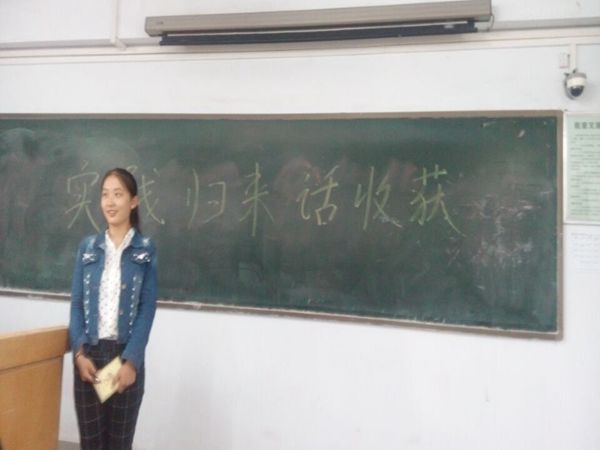 实践归来话收获